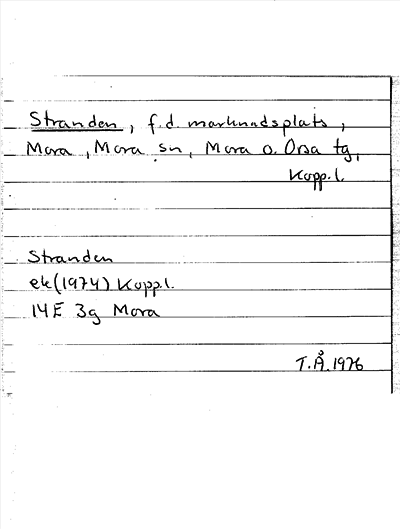 Stranden, f.d. marknadsplats,
Mora, Mora sn, Mora o. Orsa tg,
Kopp.l.
Stranden
ek(1974) Kopp.l.
14E 3g Mora
T.Å.1976